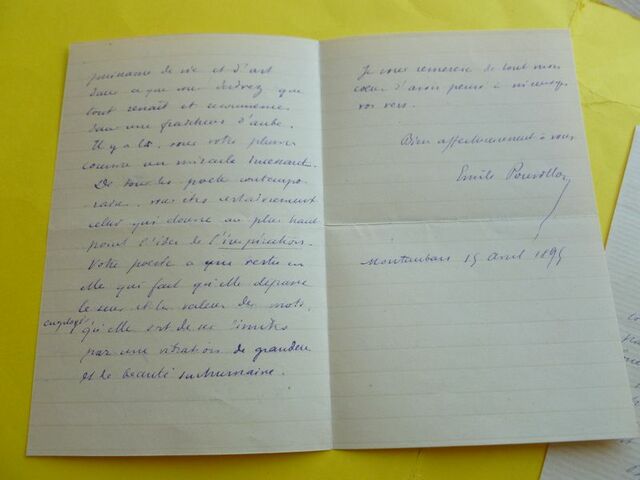 puissance de vie et d'art
dans ce que vous écrivez que
tout renaît et recommence
dans une fraîcheur d'aube.
Il y a là, sous votre plume
comme un miracle incessant.
De tous les poète contempo-
rains, vous êtes certainement
celui qui donne au plus haut
point l'idée de l'inspiration.
Votre poésie a une vertu en
elle qui fait qu'elle dépasse
le sens et la valeur des mots
employés
qu'elle sort de ses limites
par une vibration de grandeur
et de beauté surhumaine.
Je vous remercie de tout mon
cœur d'avoir pensé à m'envoyer
vos vers.
Bien affectueusement à vous
Emile Pouvillon
Montauban 15 avril 1895